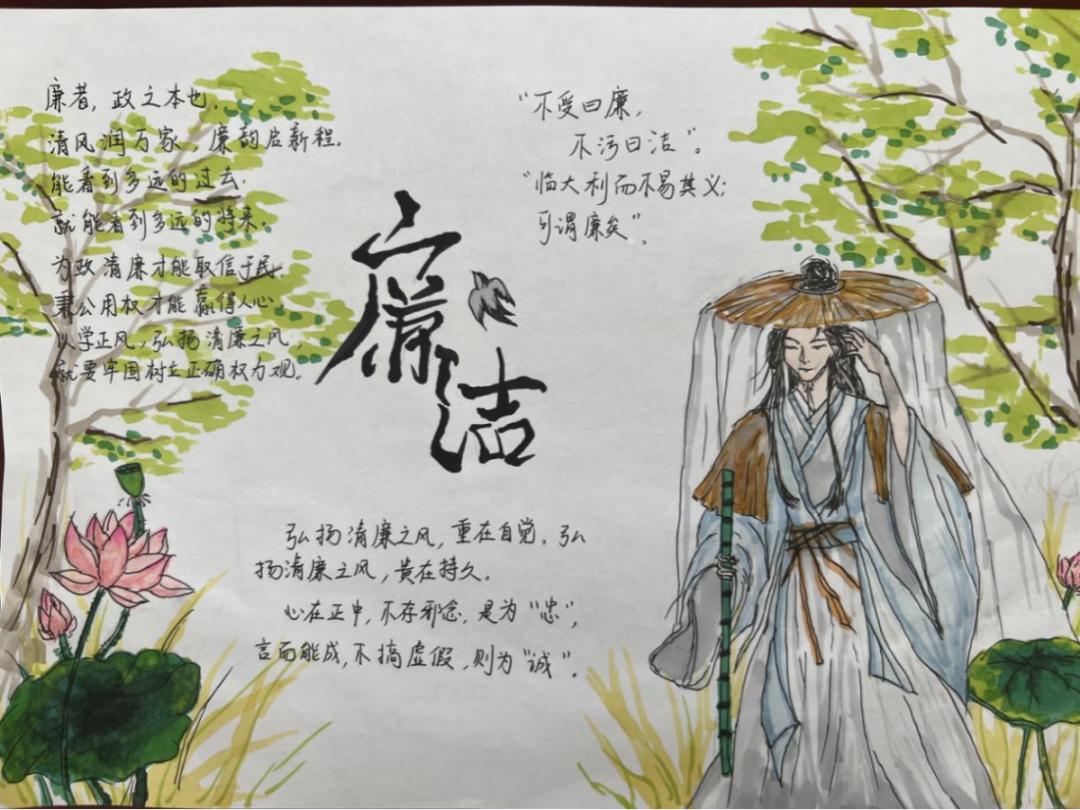 廉者，政之本也，
清风润万家，廉韵启新程。
能看到多远的过去，
就能看到多远的将来。
为政清廉才能取信于民，
秉公用权才能赢得人心。
以学正风，弘扬清廉之风，
就要牢固树立正确权力观。
“不受曰廉，
不污曰洁”。
“临大利而不易其义；
可谓廉矣”。
廉洁
弘扬清廉之风，重在自觉。弘
扬清廉之风，贵在持久。
心在正中，不存邪念，是为“忠”，
言而能成，不搞虚假，则为“诚”。